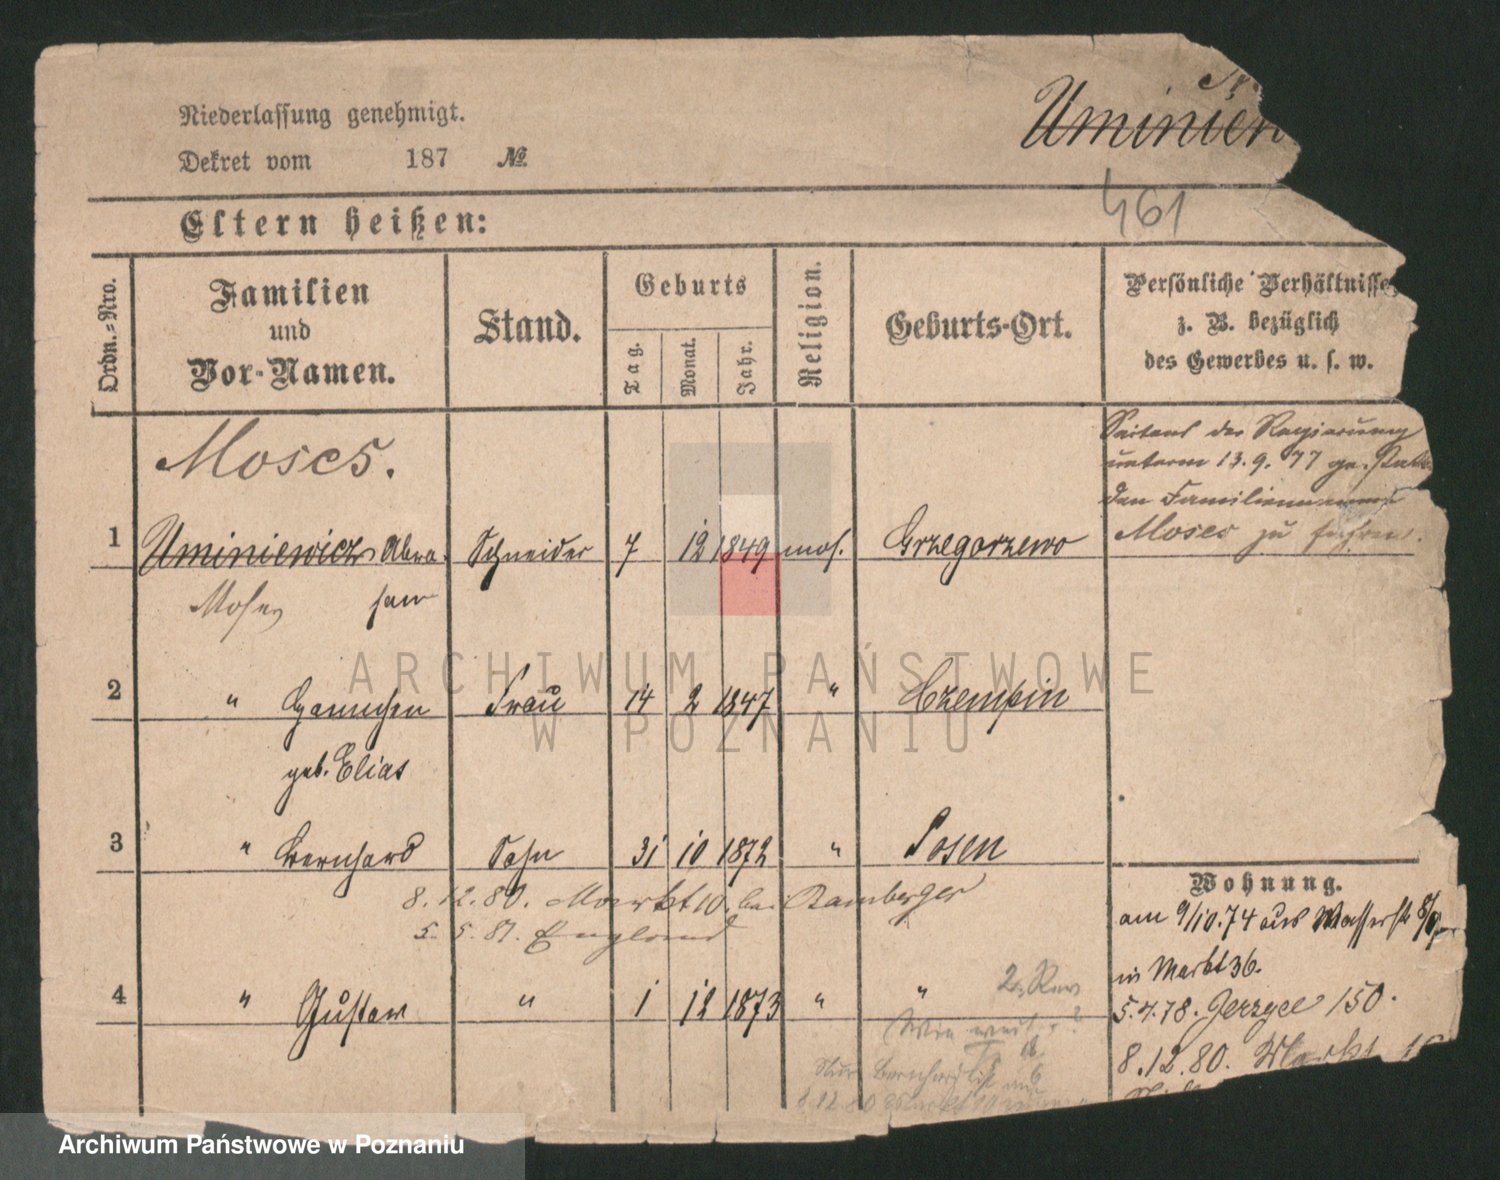 Niederlassung genehmigt.
Dekret vom 187 №
Uminien
461
Eltern heißen:
Ordn.-Nro.
Familien
und
Vor-Namen.
Stand.
Geburts
Tag.
Monat.
Jahr.
Religion.
Geburts-Ort.
Persönliche Verhältnisse
z. B. bezüglich
des Gewerbes u. s. w.
Moses.
Seitens der Regierung
unterm 13.9.77
den Familiennamen
Moses zu führen.
1 Uminiewicz Abra- Schneider 7 12 1849 mos. Grzegorzewo
Moses ham
2 " Hannchen Frau 14 2 1847 " Czempin
geb. Elias
3 " Bernhard Sohn 31 10 1872 " Posen
8.12.80. Markt 10. bei Bamberger
5. 5. 87. England
Wohnung.
am 9/10.74 aus Wasserstr
in Markt 36.
5.4.78. 150.
8.12.80. Markt
4 " Gustav " 1 12 1873 " "
2.
Nur Bernhard ist
8.12.80
ARCHIWUM PAŃSTWOWE
W POZNANIU
Archiwum Państwowe w Poznaniu